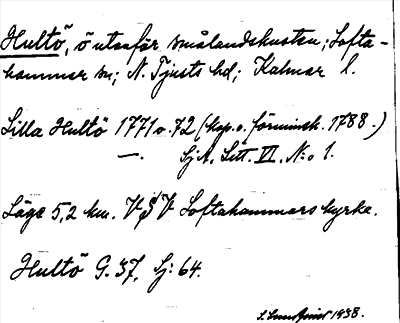 Hultö, ö utanför smålandskusten; Lofta-
hammar sn; N. Tjusts hd; Kalmar l.
Lilla Hultö 1771 o. 72 (kop. o. förminsk. 1788.)
—. SjA. Litt. VI. N:o 1.
Läge 5,2 km. VSV Loftahammars kyrka.
Hultö G. 37, Sj: 64.
1938.